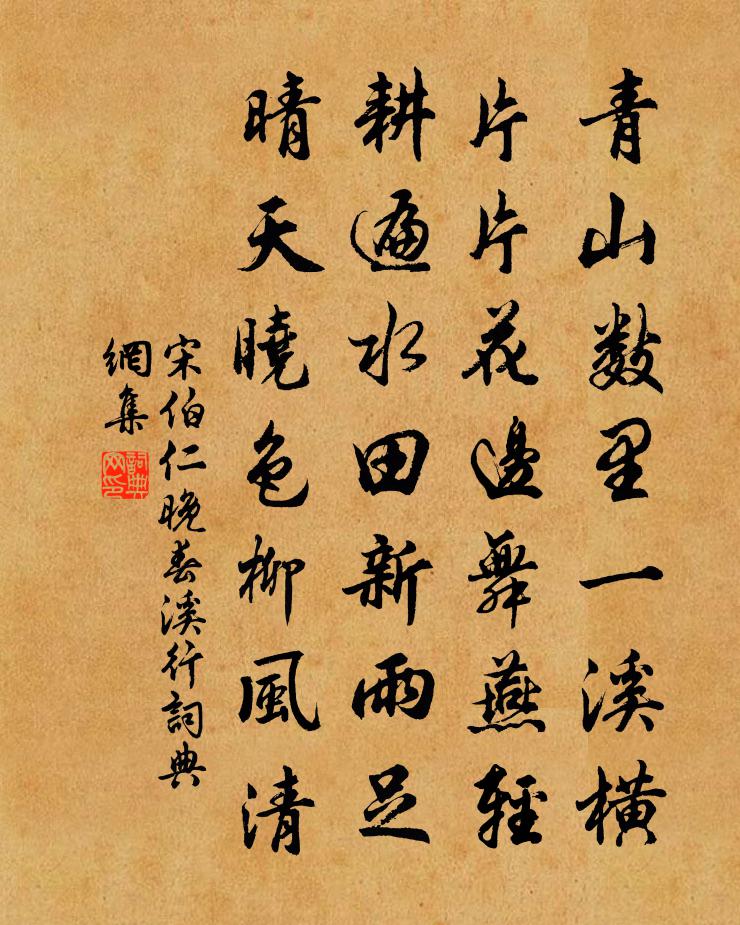 青山數里一溪橫
片片花邊舞燕輕
耕遍水田新雨足
晴天曉色柳風清
宋伯仁晚春溪行詞典
網集
詞典
网印